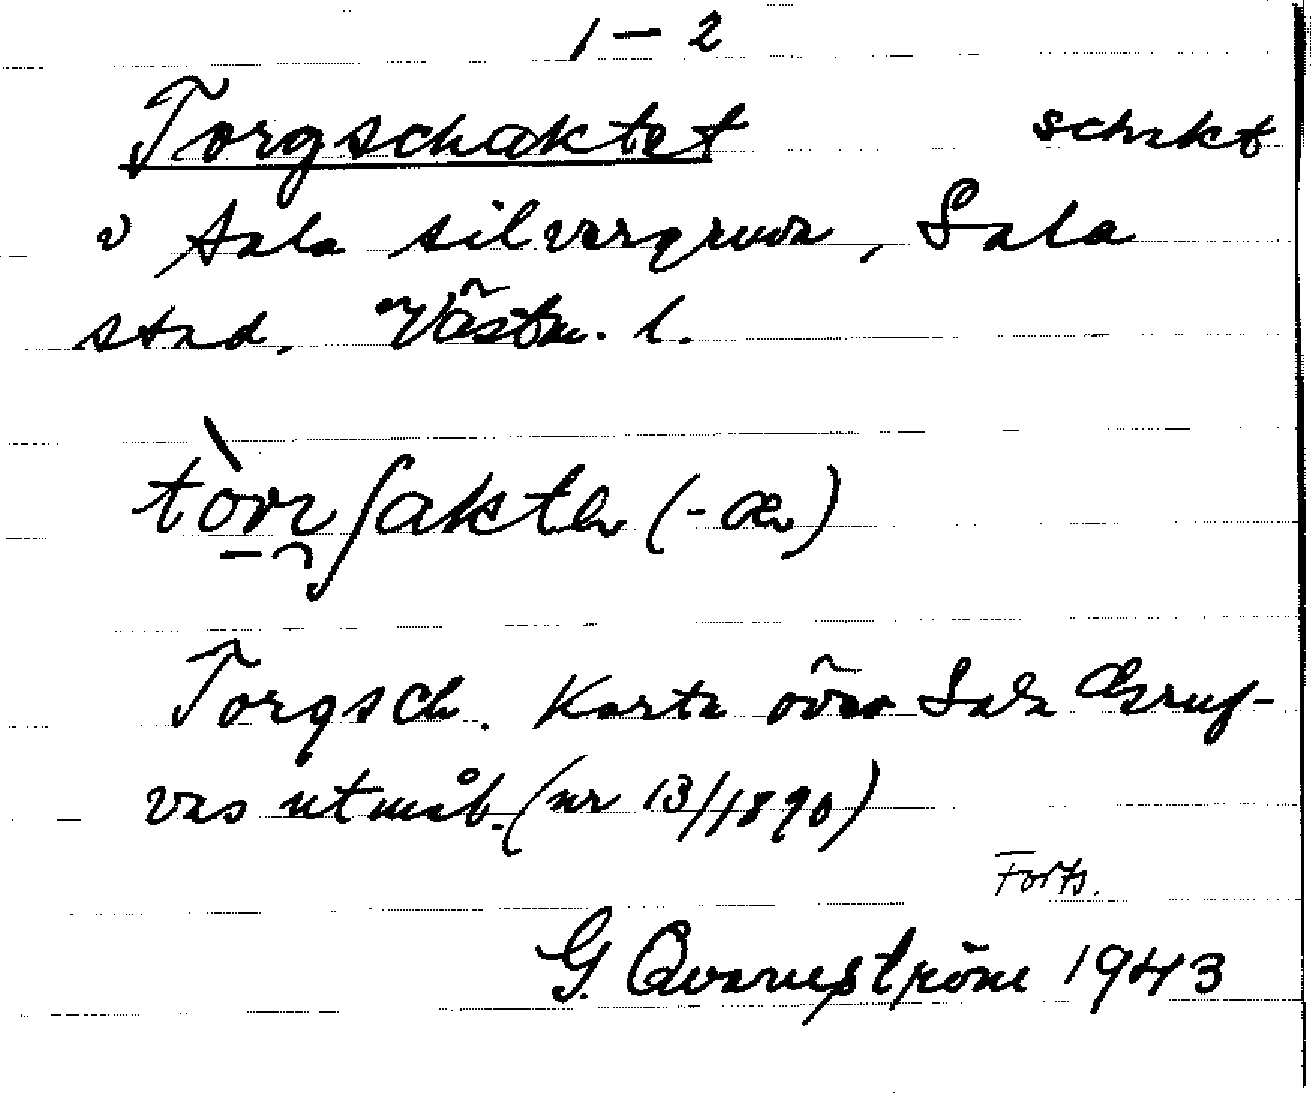 1 – 2
Torgschaktet schakt
v Sala silvergruva, Sala
stad, Västm. l.
Torgsch. Karta över Sala Gruf-
vas utmål. (nr 13/1890)
Forts.
G. Qvarnström 1943